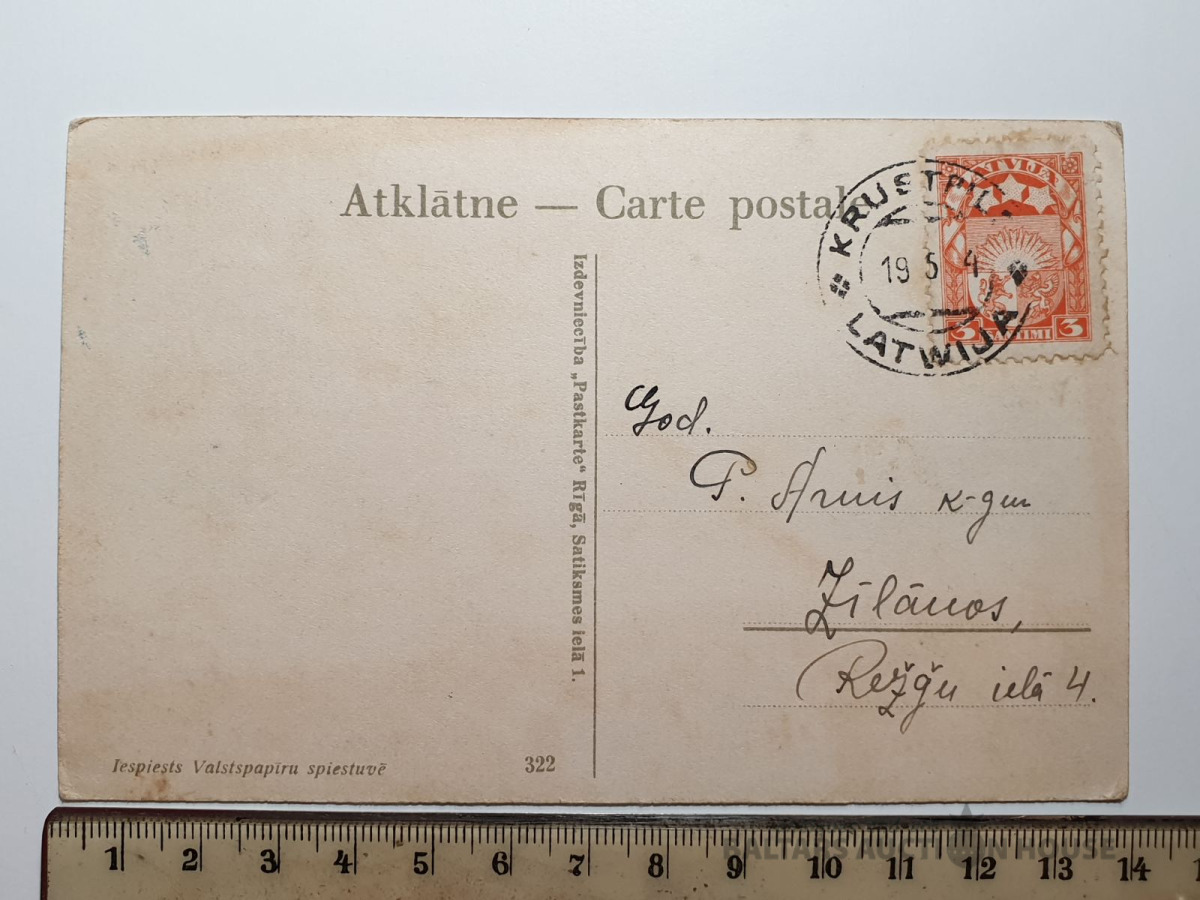 Atklātne — Carte postale
LATVIJA
3 3
KRUSTPIL
19 5 4
LATWIJA
Izdevniecība „Pastkarte“ Rīgā, Satiksmes ielā 1.
God.
P. Arnis k-gm
Zīlānos,
Režģu ielā 4.
Iespiests Valstspapīru spiestuvē
322
1 2 3 4 5 6 7 8 9 10 11 12 13 14
BALTARS AUCTION HOUSE